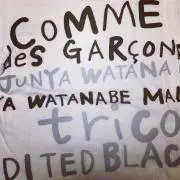 COMME
des GARÇON
JUNYA WATANA
YA WATANABE MA
trico
DITED BLAC